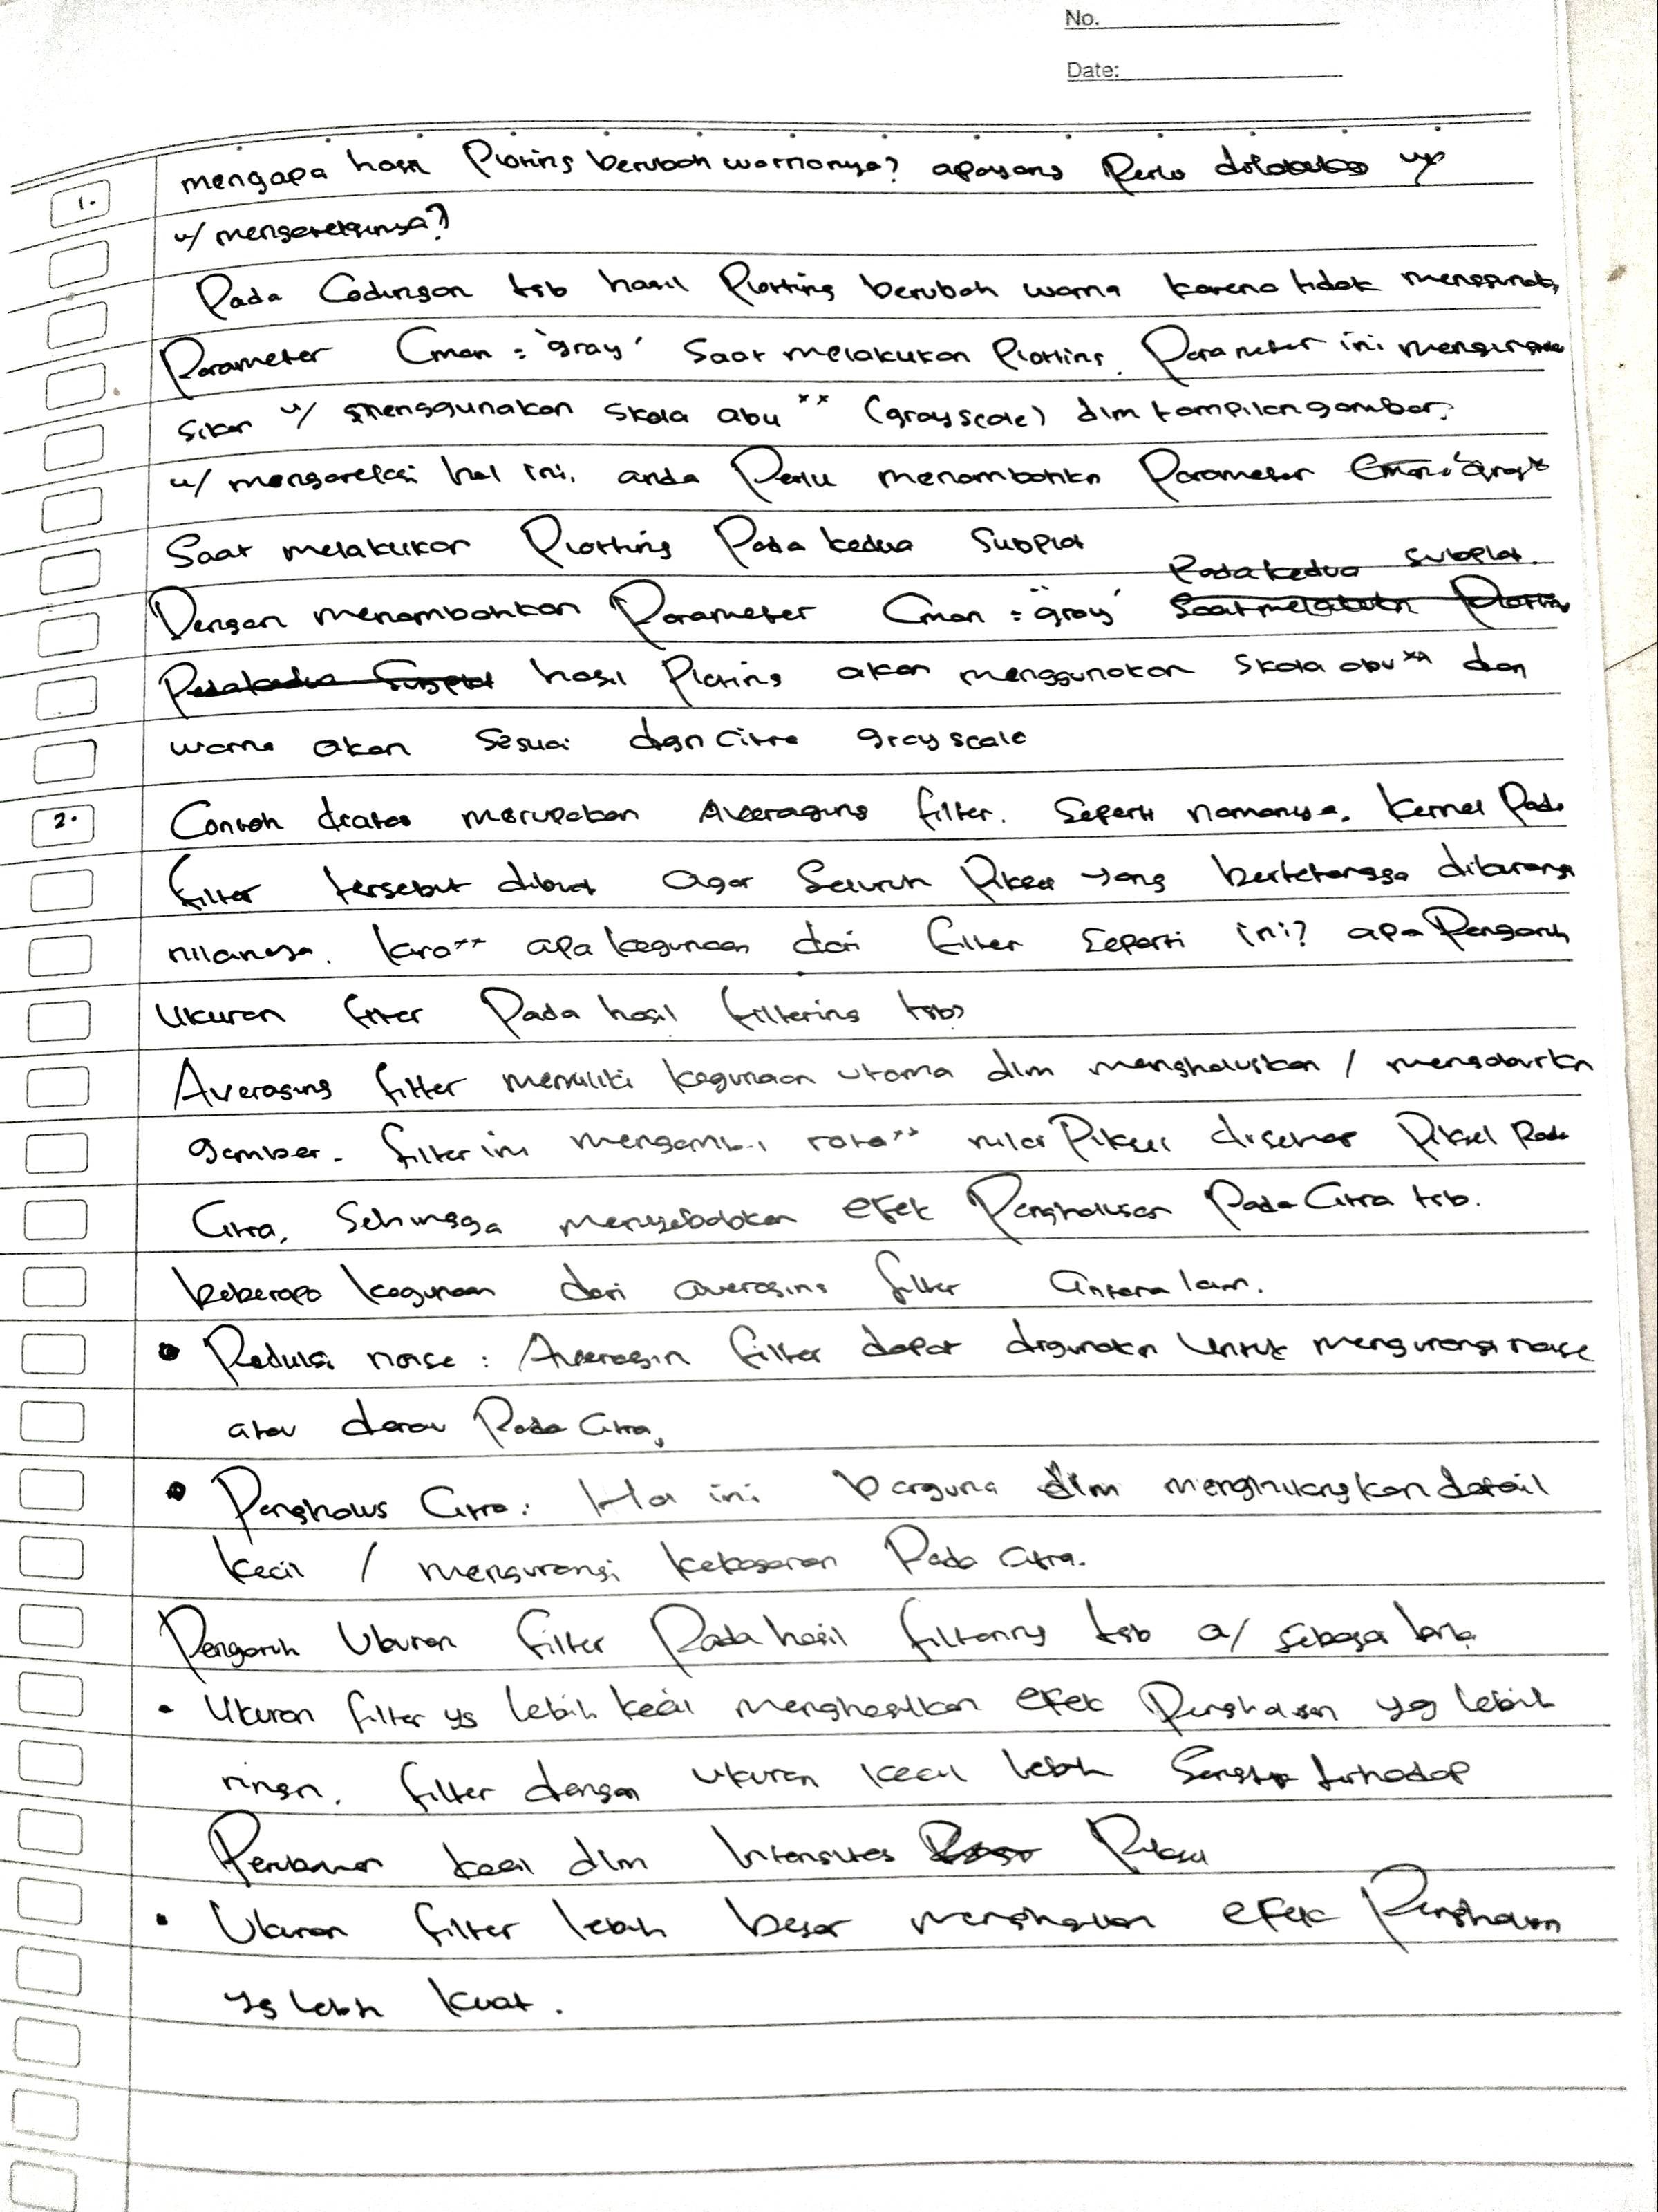 No.
Date:
1. mengapa hasil Ploting berubah warnanya? apa yang Perlu dilakukan
u/ mengatasinya?
Pada Codingan tsb hasil Plotting berubah warna karena tidak
Parameter Cmap = 'gray' saat melakukan Plotting. Parameter ini
sikan u/ menggunakan skala abu** (grayscale) dlm tampilan gambar.
u/ hal ini, anda Perlu menambahkn Parameter
Saat melakukan Plotting Pada kedua Subplot
Pada kedua subplot.
Dengan menambahkan Parameter Cmap = "gray"
hasil Ploting akan menggunakan skala abu** dan
warna akan sesuai dgn Citra grayscale
2. Contoh diatas merupakan Averaging filter. Seperti namanya, kernel Pada
filter tersebut dibuat agar Seluruh Piksel yang bertetangga
nilainya. kira** apa kegunaan dari filter seperti ini? apa Pengaruh
Ukuran filter Pada hasil filtering tsb?
Averaging filter memiliki kegunaan utama dlm menghaluskan / mengaburkn
gambar. filter ini mengambil rata** nilai Piksel disekitar Piksel Pada
Citra, Sehingga menyebabkan efek Penghalusan Pada Citra tsb.
beberapa kegunaan dari averaging filter antara lain.
• Reduksi noise : Averagin filter dapat digunakn untuk mengurangi noise
atau derau Pada Citra,
• Penghalus Citra : Hal ini berguna dlm menghilangkan detail
kecil / mengurangi kekasaran Pada citra.
Pengaruh Ukuran filter Pada hasil filtering tsb a/ sebagai
• Ukuran filter yg lebih kecil menghasilkan efek Penghalusan yg lebih
ringan. filter dengan ukuran kecil lebih terhadap
Perubahan kecil dlm Intensitas Piksel
• Ukuran filter lebih besar efek Penghalusan
yg lebih kuat.